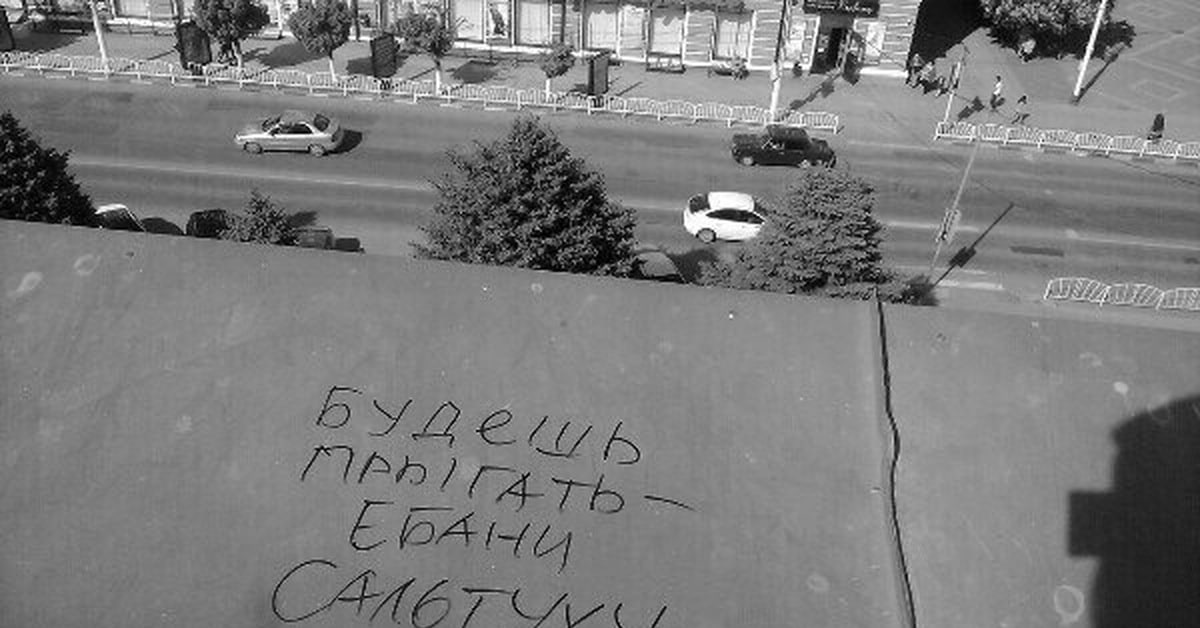 Будешь
прыгать –
ЕБАНИ
САЛЬТУХУ